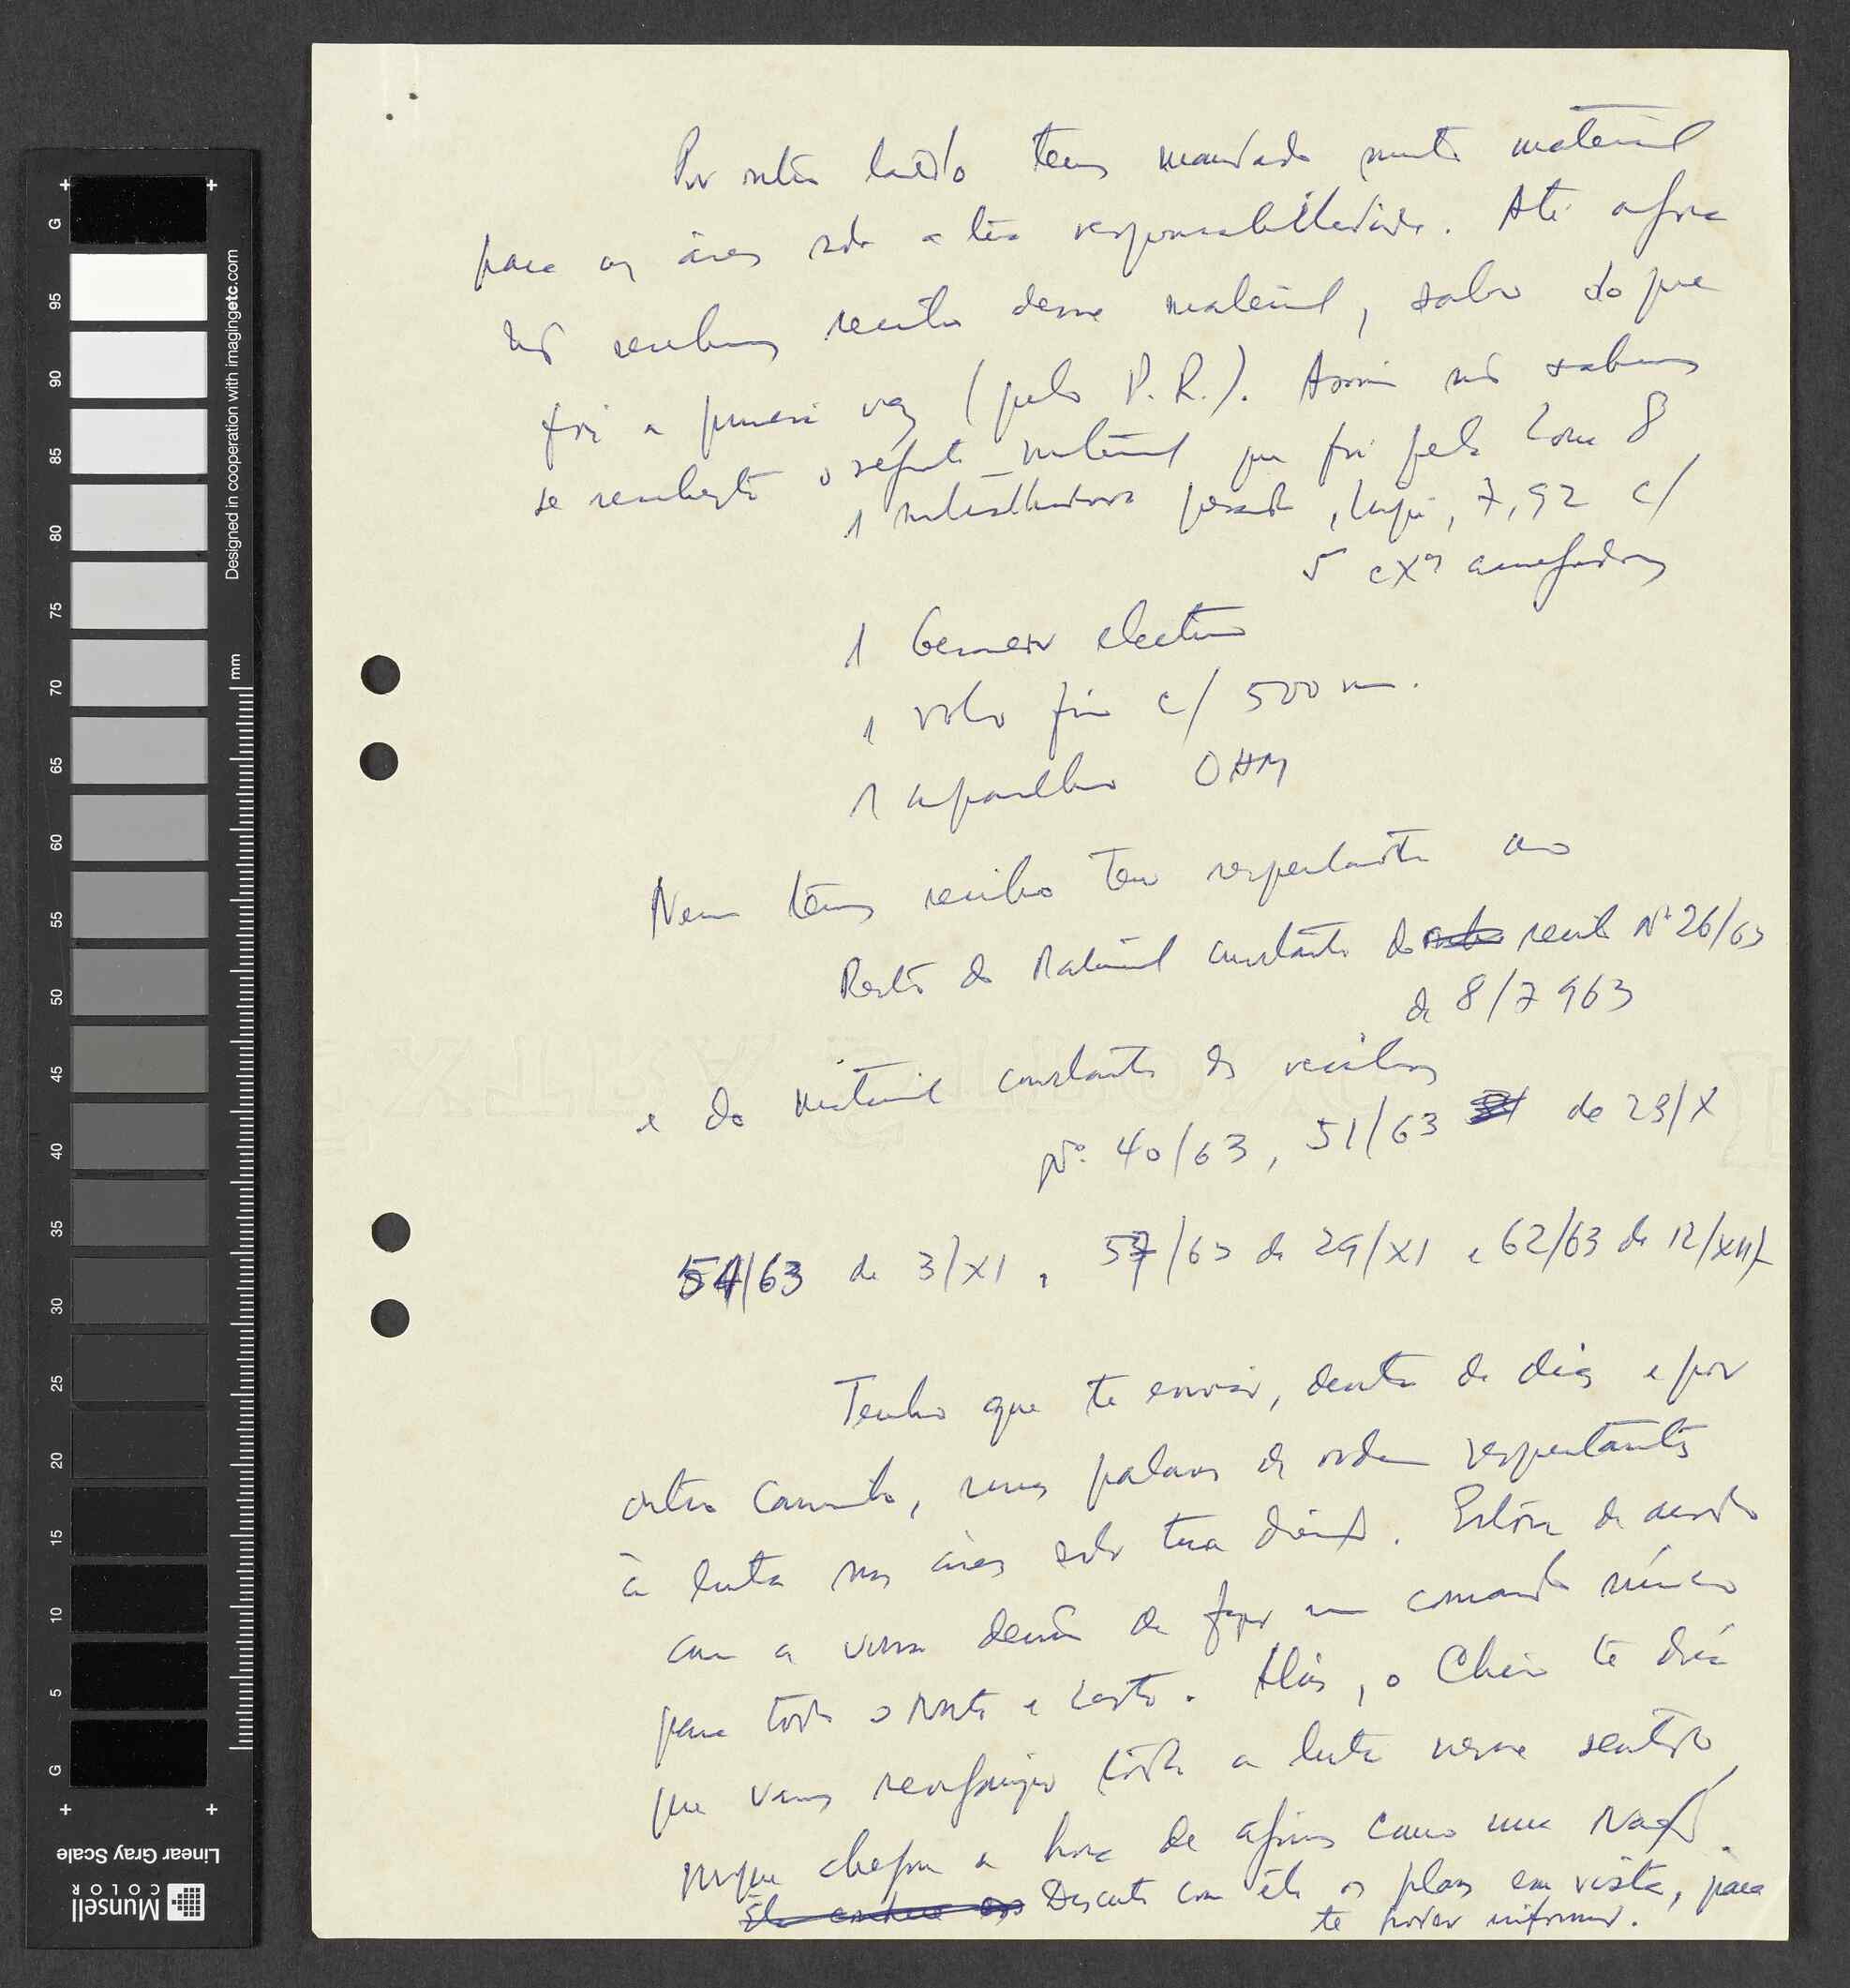 Por outro lado temos mandado muito material
para as áreas sob a tua responsabilidade. Até agora
não recebemos recibo desse material, salvo do que
foi a primeira vez (pelo P.R.). Assim não sabemos
se recebeste o seguinte material que foi pela Zona 8
1 metralhadora pesada, 7,92 c/
5 cxas carregadoras
1 Gerador electrico
1 rolo fio c/ 500 m.
1 aparelho OHM
Nem temos recibo teu respeitante ao
Resto do Material constante do recibo Nº 26/63
de 8/7 963
e do material constante dos recibos
Nº 40/63, 51/63 de 23/X
54/63 de 3/XI, 57/63 de 29/XI e 62/63 de 12/XII/
Tenho que te enviar, dentro de dias e por
outro caminho, umas palavras de ordem respeitantes
à luta nas áreas sob tua direcção. Estou de acordo
com a vossa decisão de fazer um comando único
para todo o Norte e Leste. Aliás, o Chico te dirá
que vamos reorganizar toda a luta nesse sentido,
porque chegou a hora de agirmos como uma Nação.
Discute com ele os planos em vista, para
te poder informar.
Designed in cooperation with imagingetc.com
mm
G
95
90
85
80
75
70
65
60
55
50
45
40
35
30
25
20
15
10
5
G
Linear Gray Scale
Munsell
COLOR